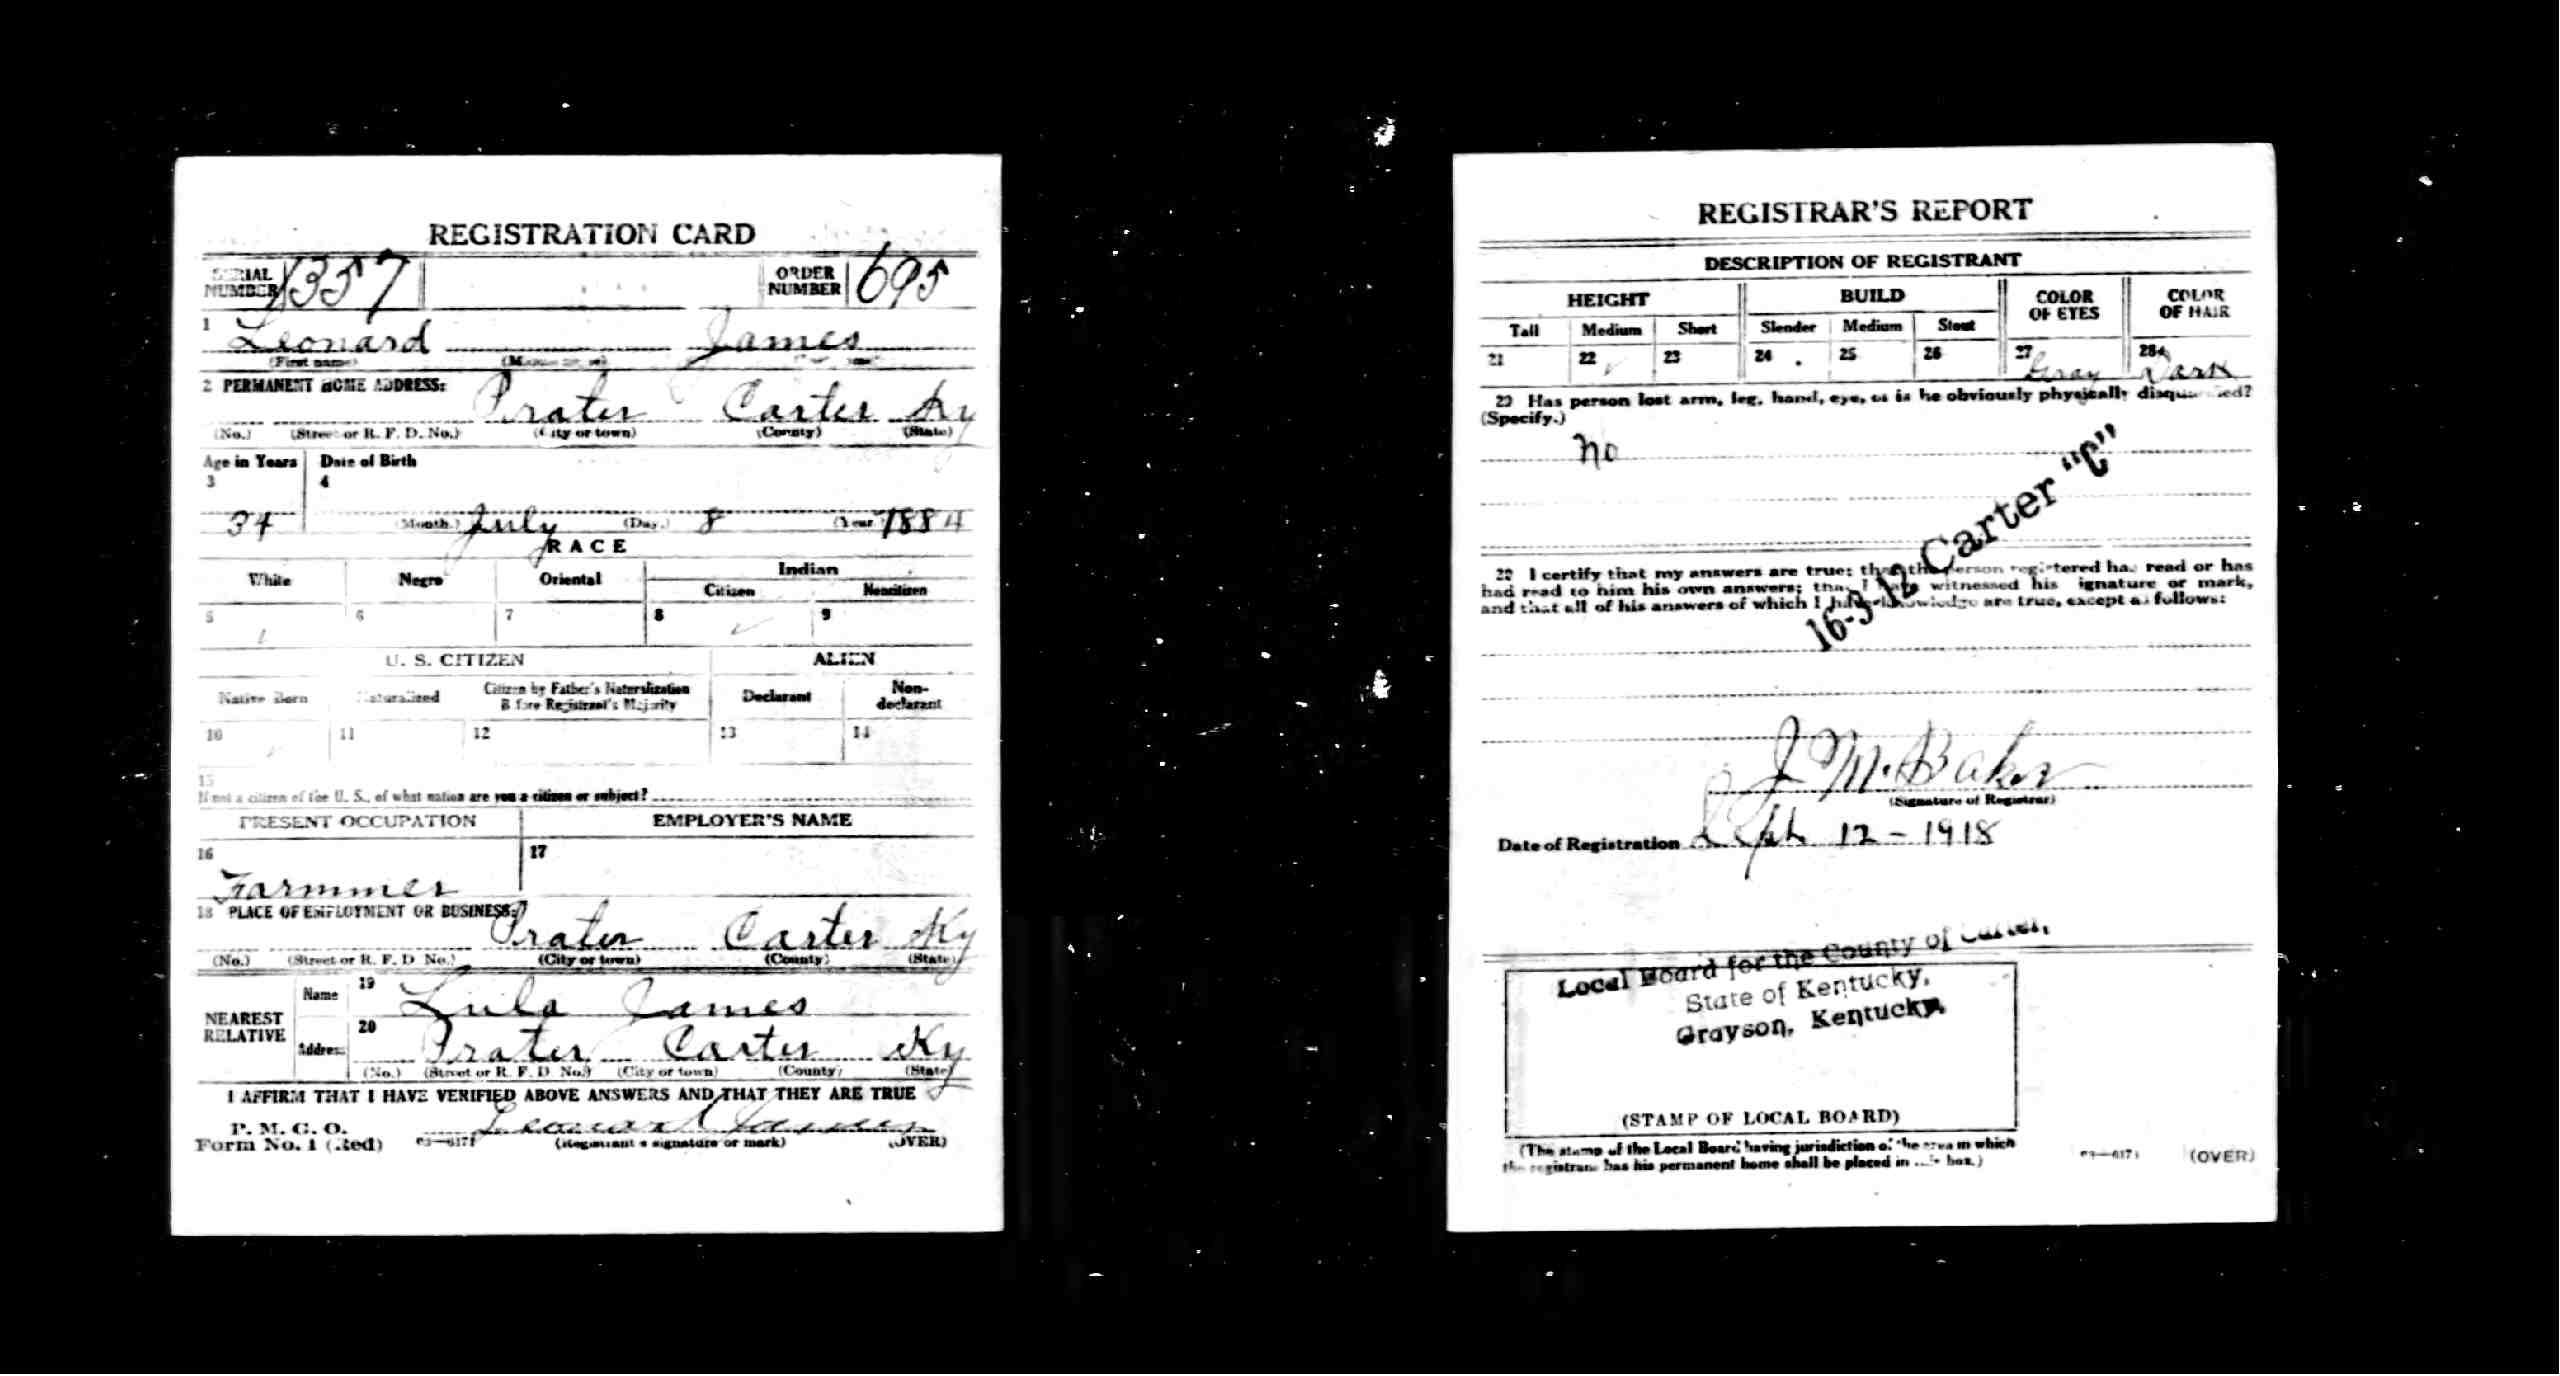 REGISTRATION CARD
SERIAL NUMBER 1357 ORDER NUMBER 695
1 Leonard James
(First name)
2 PERMANENT HOME ADDRESS:
Prater Carter Ky
(No.) (Street or R. F. D. No.) (City or town) (County) (State)
Age in Years Date of Birth
3 4
34 (Month.) July (Day.) 8 (Year.) 1884
RACE
White Negro Oriental Indian
Citizen Noncitizen
5 6 7 8 ✓ 9
U. S. CITIZEN ALIEN
Native Born Naturalized Citizen by Father's Naturalization Before Registrant's Majority Declarant Non-declarant
10 ✓ 11 12 13 14
15
If not a citizen of the U. S., of what nation are you a citizen or subject?
PRESENT OCCUPATION EMPLOYER'S NAME
16 17
Farmmer
18 PLACE OF EMPLOYMENT OR BUSINESS:
Prater Carter Ky
(No.) (Street or R. F. D. No.) (City or town) (County) (State)
NEAREST RELATIVE
Name 19 Lula James
Address 20 Prater Carter Ky
(No.) (Street or R. F. D. No.) (City or town) (County) (State)
I AFFIRM THAT I HAVE VERIFIED ABOVE ANSWERS AND THAT THEY ARE TRUE
P. M. G. O.
Leonard James
Form No. 1 (Red) (Registrant's signature or mark) (OVER)
REGISTRAR'S REPORT
DESCRIPTION OF REGISTRANT
HEIGHT BUILD COLOR OF EYES COLOR OF HAIR
Tall Medium Short Slender Medium Stout
21 22 ✓ 23 24 25 26 27 Gray 28 Dark
29 Has person lost arm, leg, hand, eye, or is he obviously physically disqualified?
(Specify.)
No
16-3-12 Carter "C"
30 I certify that my answers are true; that the person registered has read or has
had read to him his own answers; that I have witnessed his signature or mark,
and that all of his answers of which I have knowledge are true, except as follows:
J M. Baker
(Signature of Registrar)
Date of Registration Sept 12 - 1918
Local Board for the County of Carter,
State of Kentucky,
Grayson, Kentucky.
(STAMP OF LOCAL BOARD)
(The stamp of the Local Board having jurisdiction of the area in which
the registrant has his permanent home shall be placed in this box.)
(OVER)